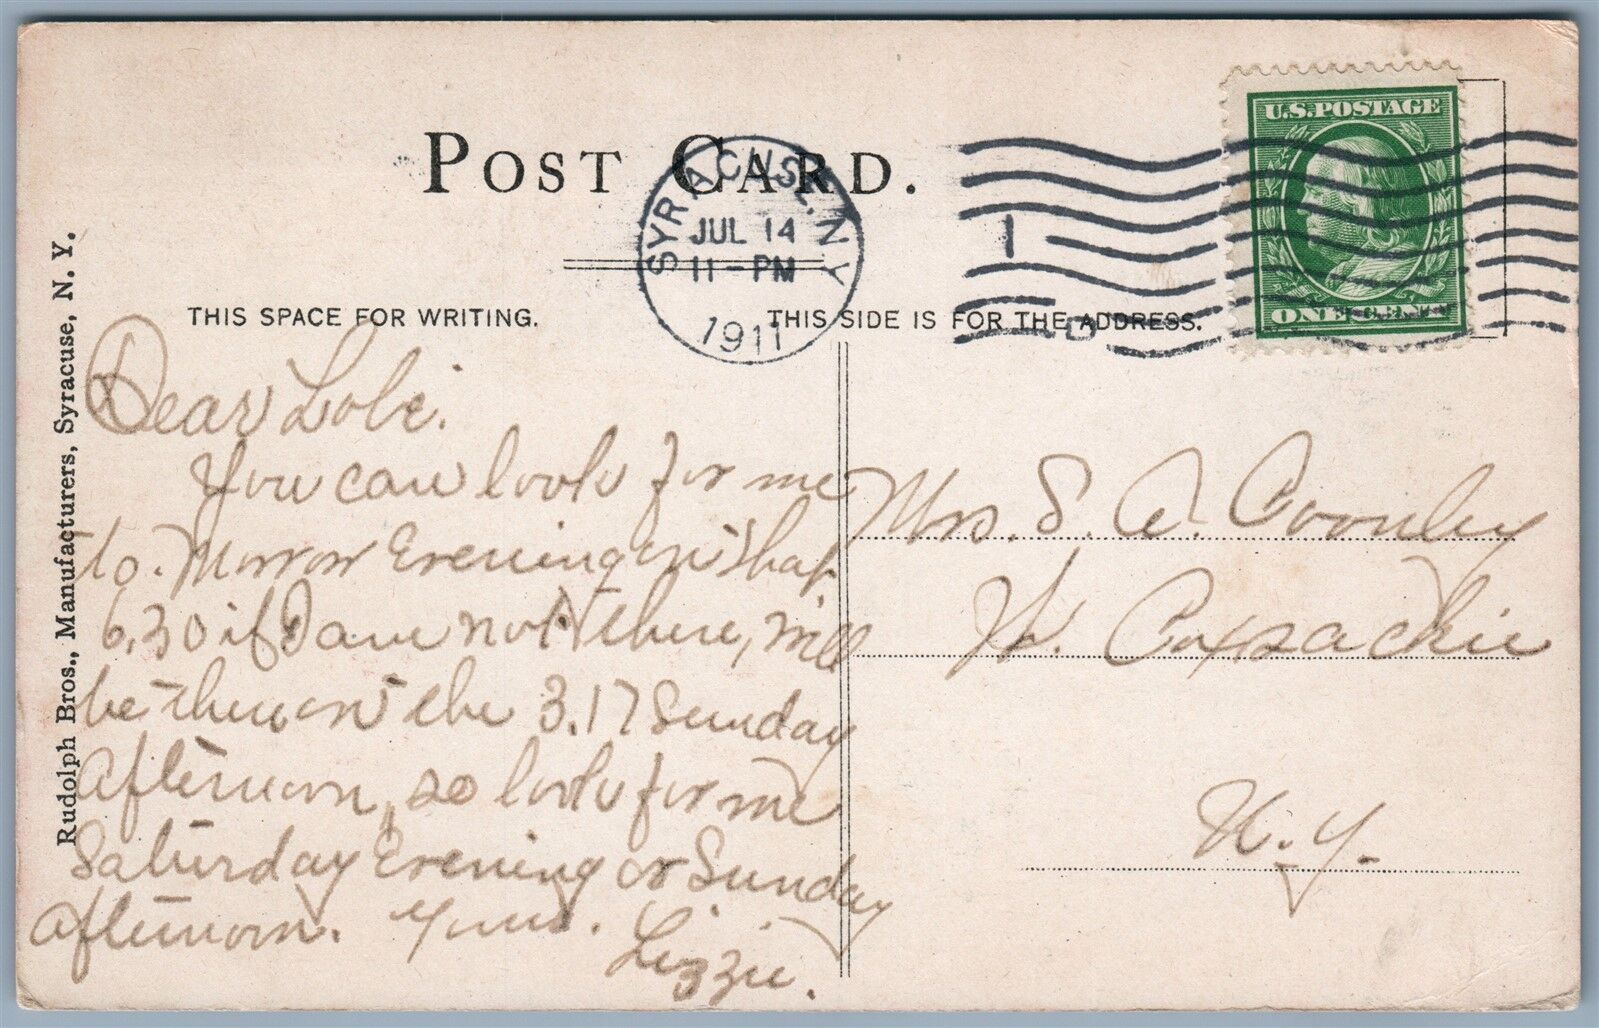 POST CARD.
SYRACUSE, N.Y.
JUL 14
11-PM
1911
1
D
U.S. POSTAGE
ONE CENT
THIS SPACE FOR WRITING.
THIS SIDE IS FOR THE ADDRESS.
Rudolph Bros., Manufacturers, Syracuse, N. Y.
Dear Lobe.
You can look for me
to. Morrow Evening on that
6.30 if I am not there, will
be there on the 3.17 Sunday
afternoon, so look for me
Saturday Evening or Sunday
afternoon. Yours.
Lizzie.
Mrs. S. A. Coonley
W. Coxsackie
N.Y.